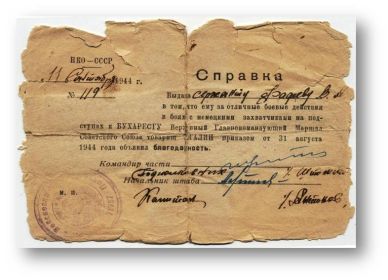 НКО—СССР
11 Сентября 1944 г.
№ 119
Справка
Выдана сержанту Фадееву В.
в том, что ему за отличные боевые действия
в боях с немецкими захватчиками на под-
ступах к БУХАРЕСТУ Верховный Главнокомандующий Маршал
Советского Союза товарищ СТАЛИН приказом от 31 августа
1944 года объявил благодарность.
Командир части
Подполковник
Начальник штаба
М. П.
Капитан